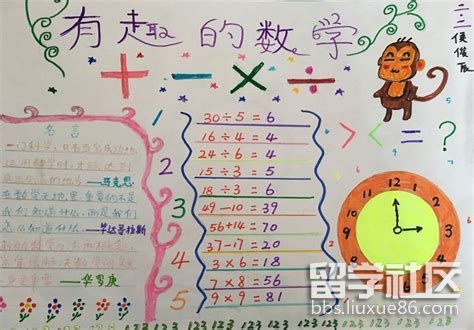 有趣的数学
二二
侯俊辰
+ - × ÷
名言
一门科学,只有当它成功地
运用数学时,才能达到
——马克思
在数学天地里,重要的不是
我们知道什么,而是我们
怎么知道什么。——毕达哥拉斯
——华罗庚
1
2
3
4
5
30÷5=6
16÷4=4
24÷6=4
15÷3=5
18÷3=6
49-10=39
56+14=70
37-17=20
3×6=18
9×9=81
> < = ?
12
1
2
3
4
5
6
7
8
9
10
11
123 123 123 123 123 123 123 123
留学社区
bbs.liuxue86.com